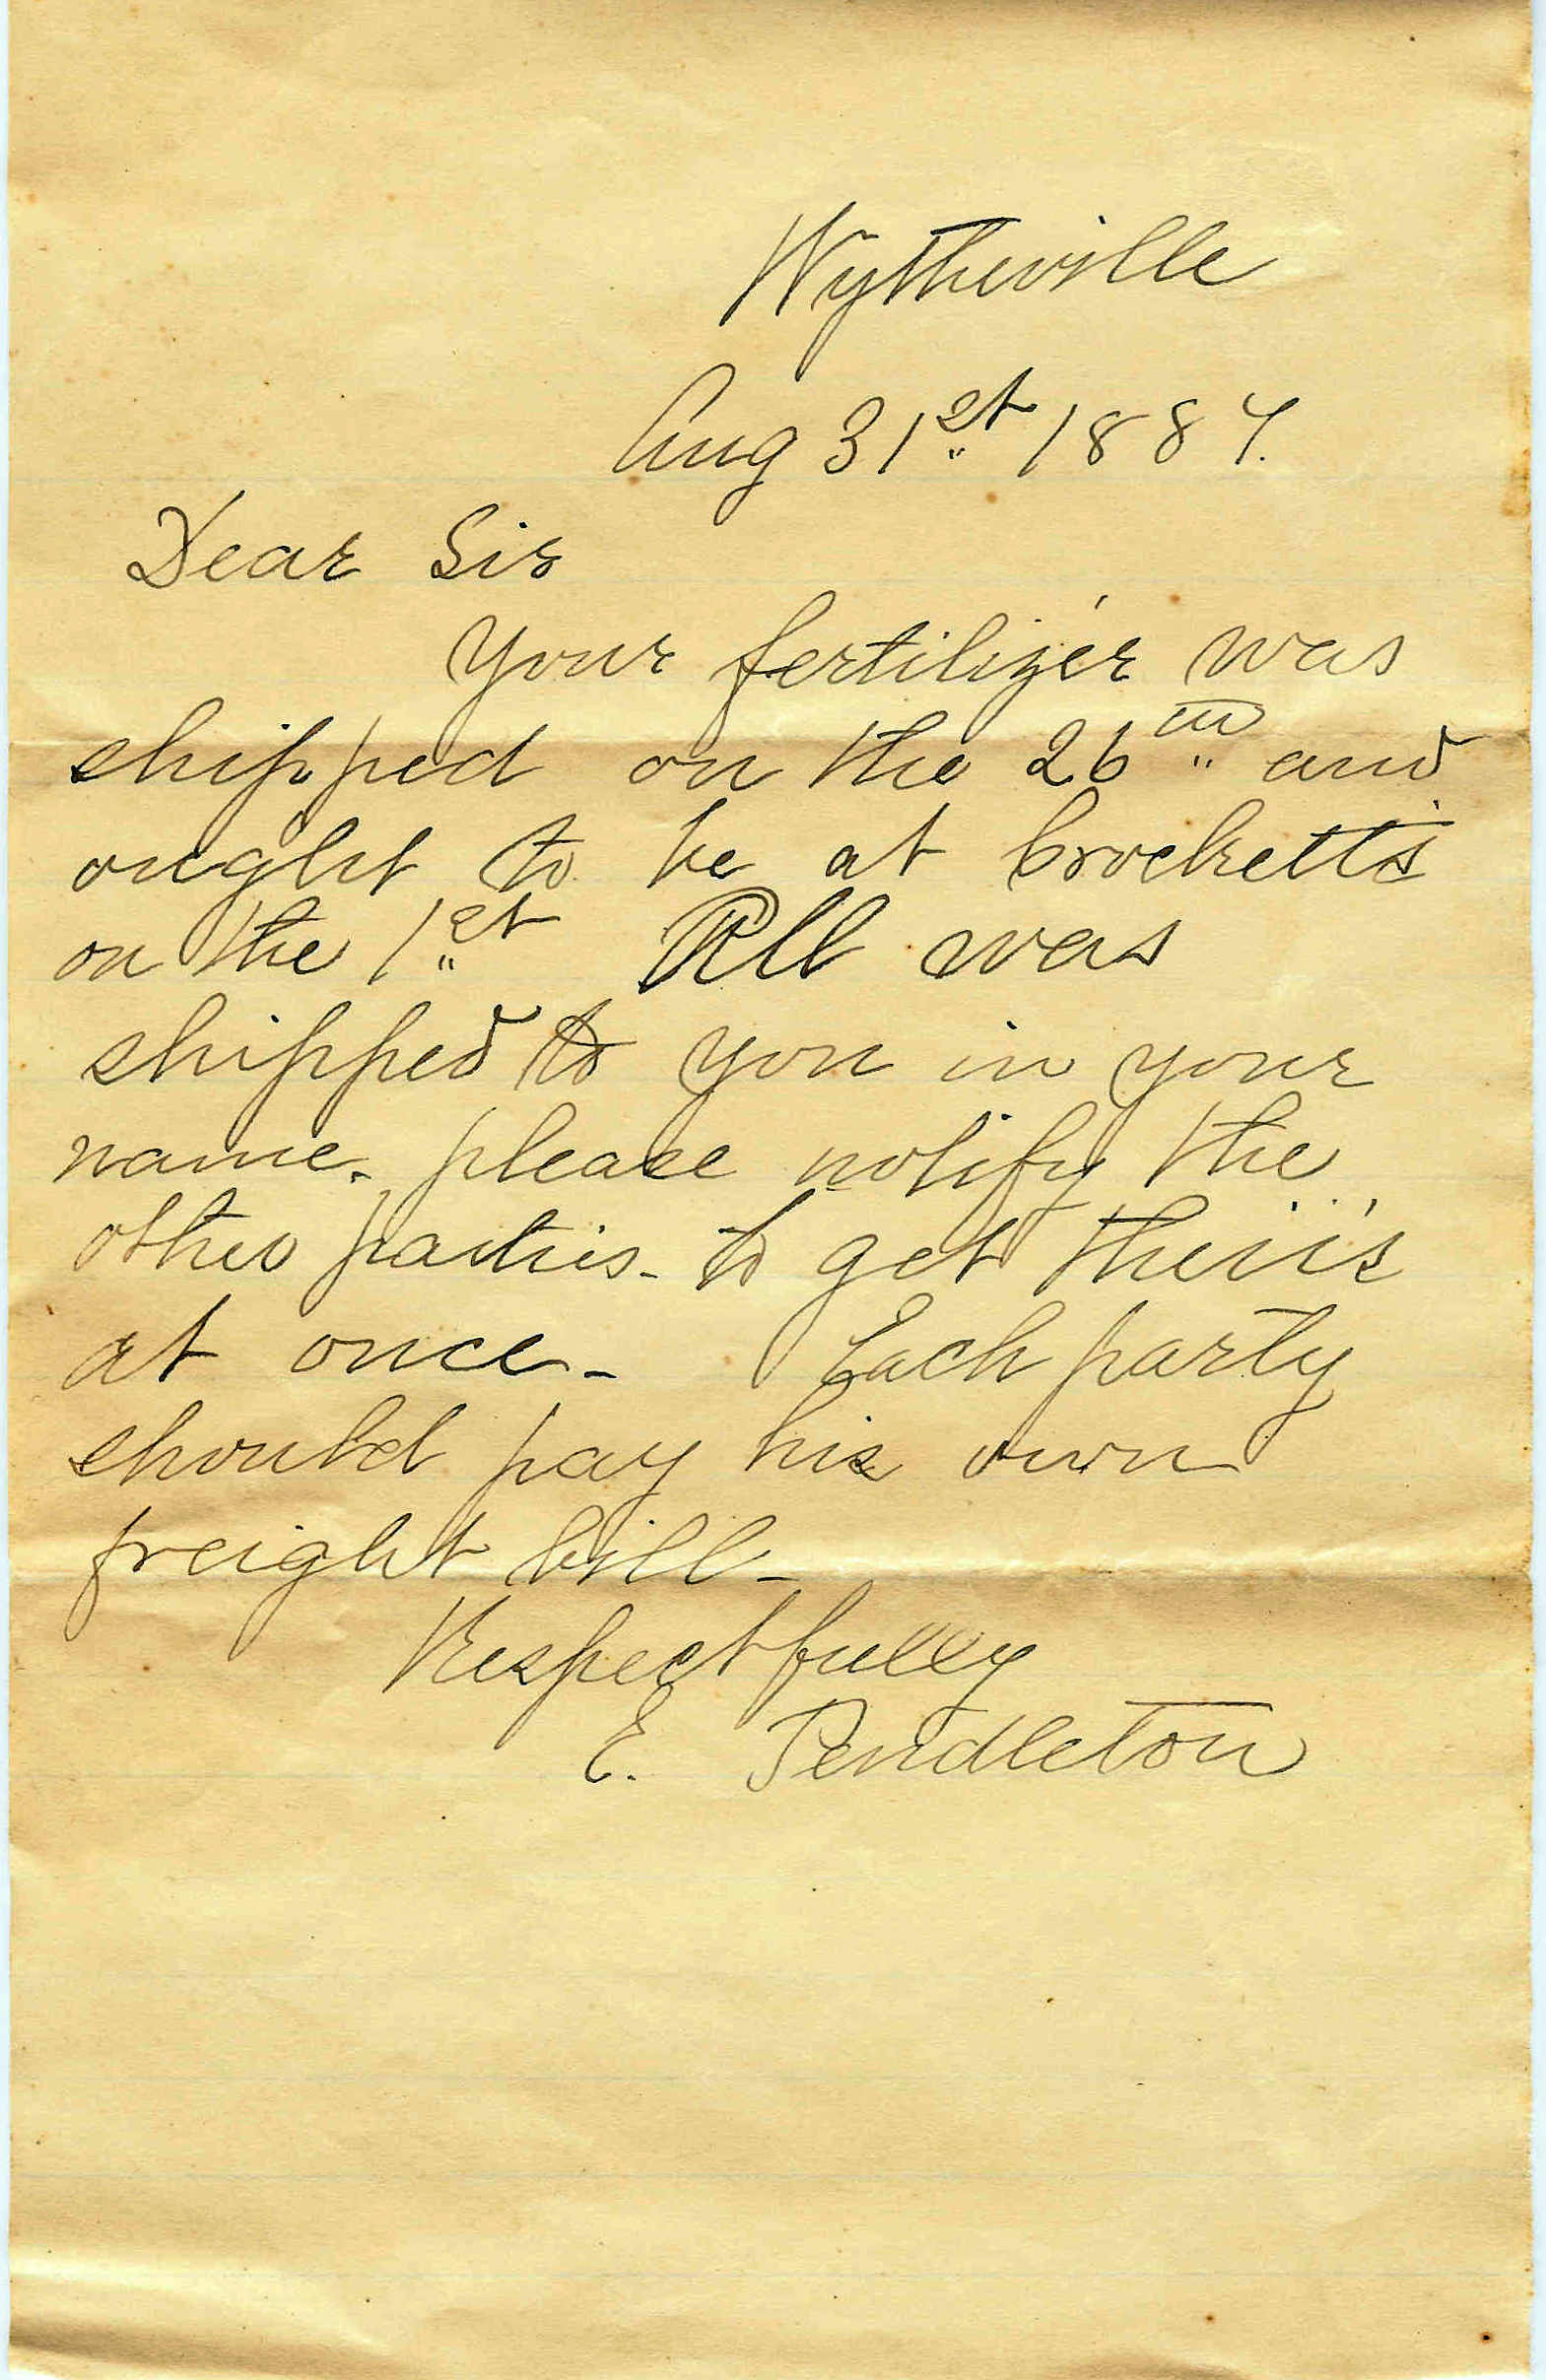 Wytheville
Aug 31st 1887.
Dear Sir
Your fertilizer was
shipped on the 26th and
ought to be at Crocketts
on the 1st All was
shipped to you in your
name. please notify the
other parties - to get their's
at once - Each party
should pay his own
freight bill -
Respectfully
E. Pendleton